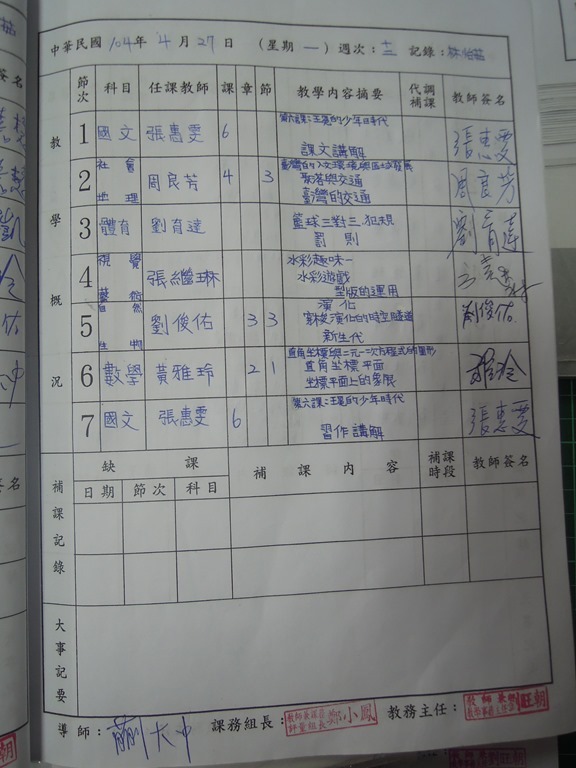 中華民國 104年 4月27日 (星期一) 週次:十二 記錄:林怡
教學概況
節次 科目 任課教師 課 章 節 教學內容摘要 代調補課 教師簽名
1 國文 張惠雯 6 第六課:王冕的少年時代
課文講解 張惠雯
2 社會 地理 周良芳 4 3 臺灣的人文環境與區域發展
聚落與交通
臺灣的交通 周良芳
3 體育 劉育達 籃球三對三犯規
罰則 劉育達
4 視覺 藝術 張繼琳 水彩趣味一
水彩遊戲
型版的運用
5 自然 生物 劉俊佑 3 3 演化
窺探演化的時空隧道
新生代 劉俊佑
6 數學 黃雅玲 2 1 直角坐標與二元一次方程式的圖形
直角坐標平面
坐標平面上的象限 雅玲
7 國文 張惠雯 6 第六課:王冕的少年時代
習作講解 張惠雯
補課記錄
缺課 補課內容 補課時段 教師簽名
日期 節次 科目
大事記要
導師: 劉大中 課務組長: 教師兼課務評量組長 鄭小鳳 教務主任: 教師兼教務處主任 劉旺朝